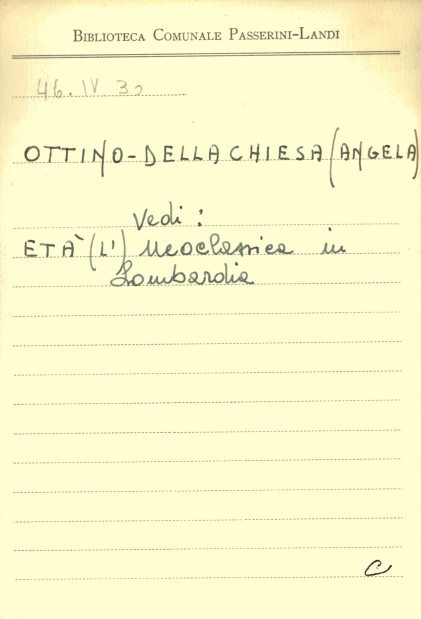 BIBLIOTECA COMUNALE PASSERINI-LANDI
46. IV. 30
OTTINO-DELLA CHIESA (ANGELA)
Vedi:
ETÀ (L') Neoclassica in
Lombardia
C